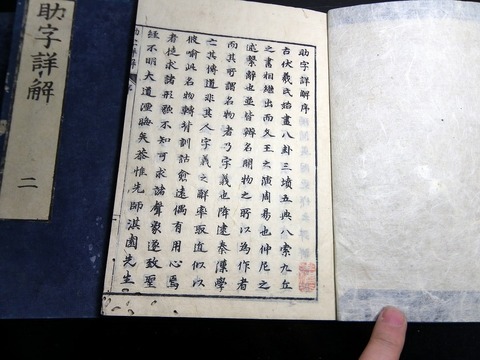 助字詳解序
古伏羲氏始畫八卦三墳五典八索九丘
之書相繼出而文王之演周易也仲尼之
繫辭也並皆辨名開物之所以為作者
而其可謂名物者乃字義也降逮秦漢學
亡其傳道非其人字義之辭率取近似以
彼喻此名物轉背訓詁愈遠偶有用心焉
者徒求諸形不知可求諸聲象遂致聖
經不明大道湮晦矣恭惟先師淇園先生
助字詳解
助字詳解 二